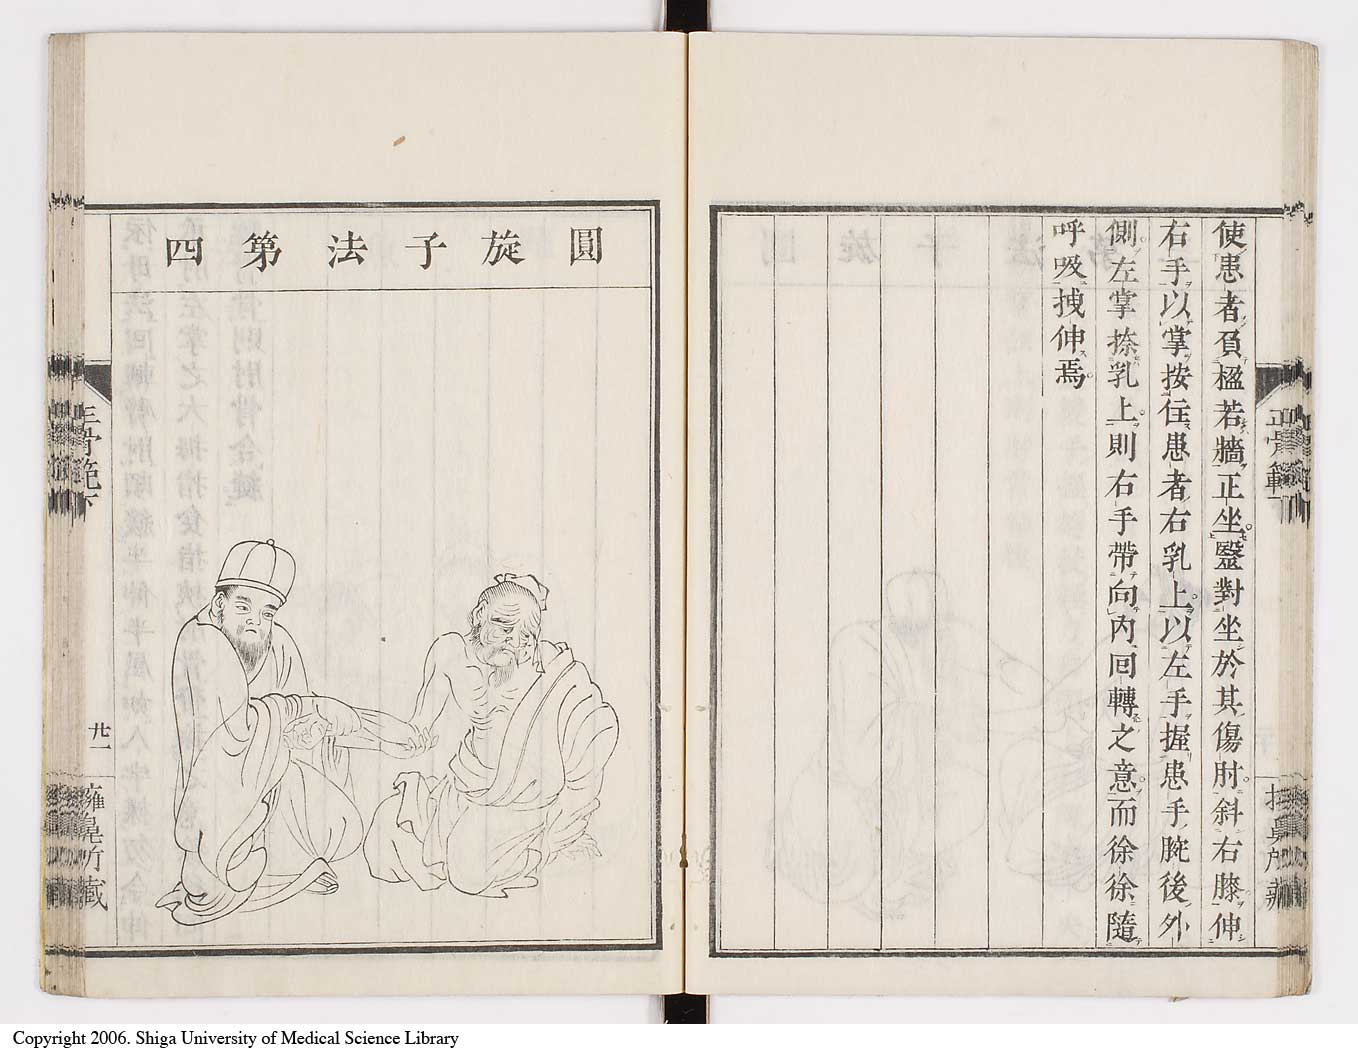 使患者頁楹若牆正坐毉對坐於其傷肘斜右膝伸
右手以掌按住患者右乳上以左手握患手腕後外
側左掌捺乳上則右手帶向內回轉之意而徐徐隨
呼吸拽伸焉
圓旋子法第四
正骨範下
廿一
擁鼻所藏
Copyright 2006. Shiga University of Medical Science Library